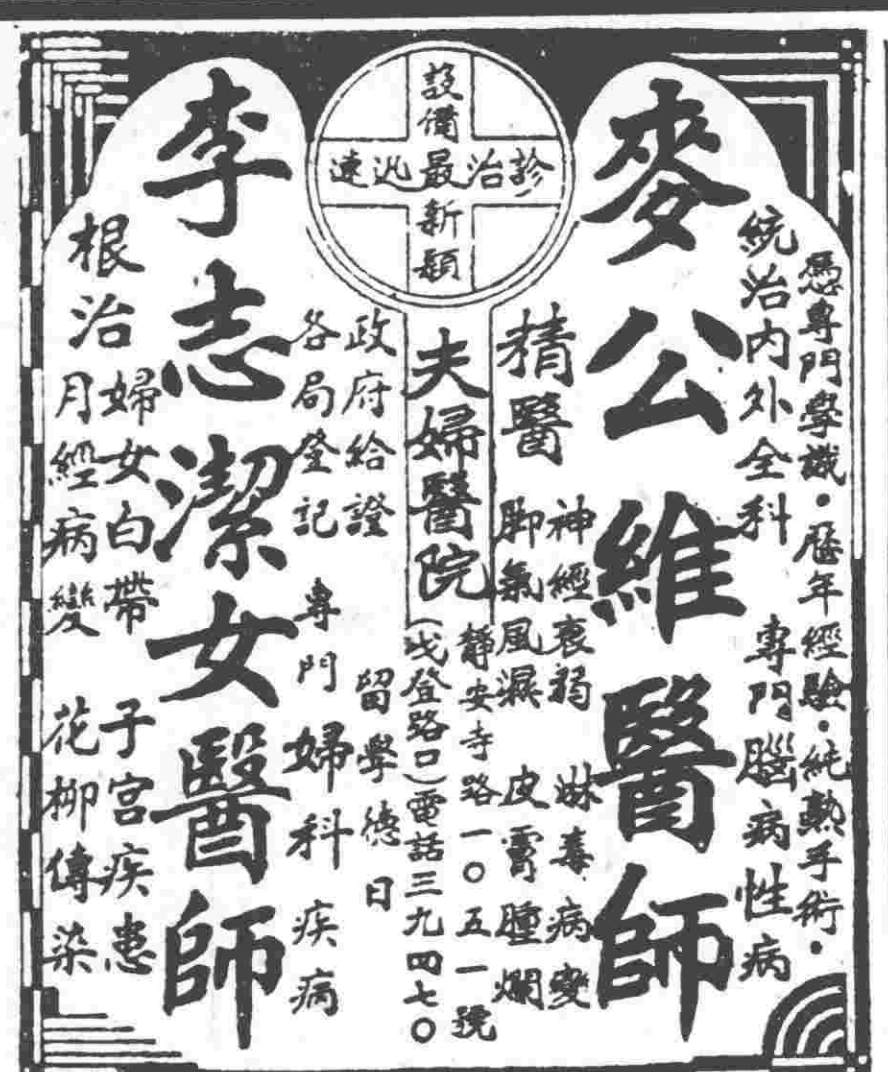 憑專門學識•歷年經驗•純熟手術•
統治內外全科
專門腦病性病
麥公維醫師
精醫
神經衰弱
腳氣風濕
淋毒病變
皮膚腫爛
設備最新穎
診治最迅速
夫婦醫院
靜安寺路一〇五一號
(戈登路口)電話三九四七〇
政府給證
各局登記
留學德日
專門婦科疾病
李志潔女醫師
根治
婦女白帶
月經病變
子宮疾患
花柳傳染